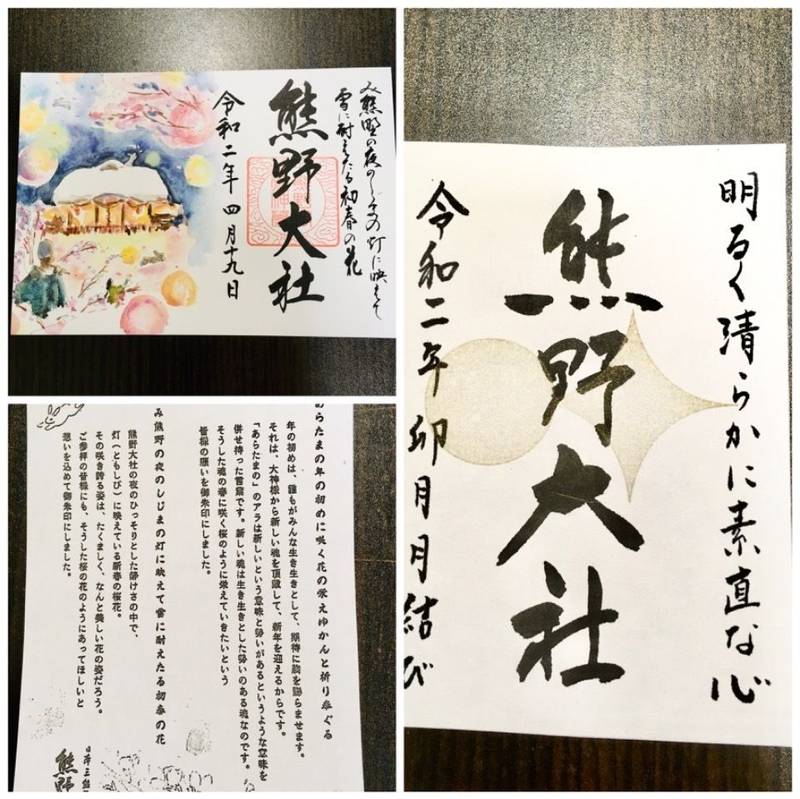 み熊野の夜のしじまの灯に映えて
雪に耐えたる初春の花
熊野大社
令和二年 四月十九日
明るく清らかに素直な心
熊野大社
令和二年 卯月 月結び
あらたまの年の初めに咲く花の栄えゆかんと祈り奉ぐる
年の初めは、誰もがみんな生き生きとして、期待に胸を踊らませます。
それは、大神様から新しい魂を頂戴して、新年を迎えるからです。
「あらたまの」のアラは新しいという意味と勢いがあるというような意味を
併せ持った言葉です。新しい魂は生き生きとした勢いのある魂なのです。
そうした魂の春に咲く桜のように栄えていきたいという
皆様の願いを御朱印にしました。
み熊野の夜のしじまの灯に映えて雪に耐えたる初春の花
熊野大社の夜のひっそりとした静けさの中で、
灯（ともしび）に映えている新春の桜花。
その咲き誇る姿は、たくましく、なんと美しい花の姿だろう。
ご参拝の皆様にも、そうした桜の花のようにあってほしいと
想いを込めて御朱印にしました。
日本三熊
熊野